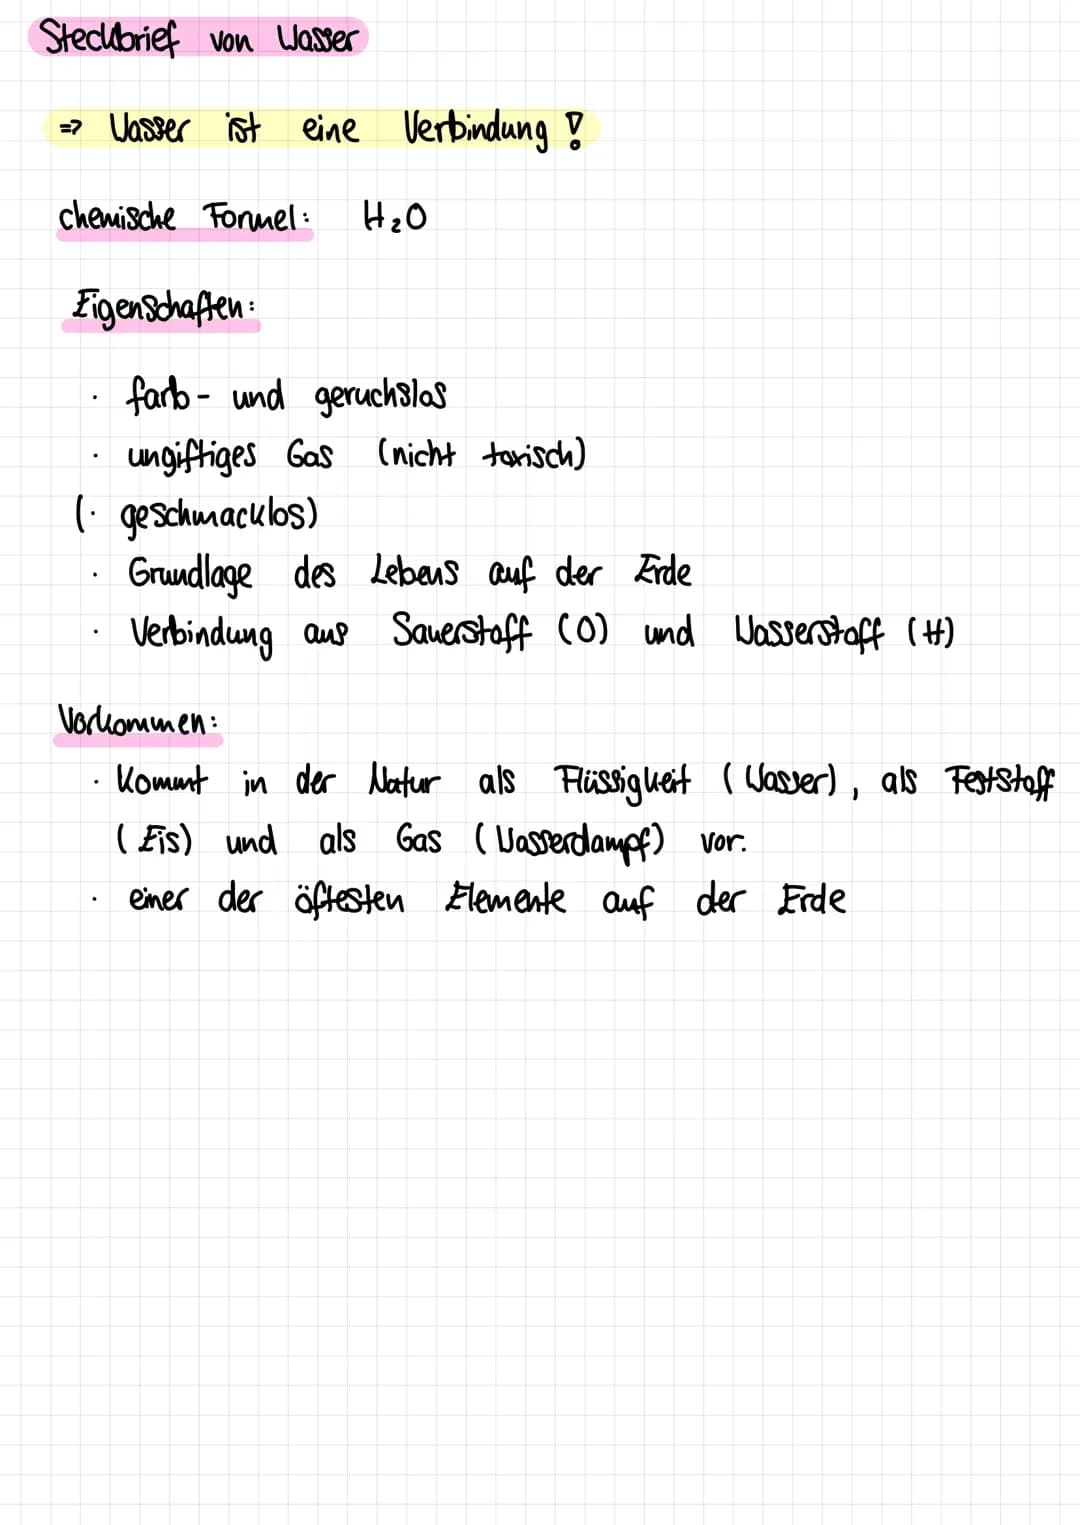 Steckbrief von Wasser
=> Wasser ist eine Verbindung !
chemische Formel: H₂O
Eigenschaften:
· farb- und geruchslos
· ungiftiges Gas (nicht toxisch)
(· geschmacklos)
· Grundlage des Lebens auf der Erde
· Verbindung aus Sauerstoff (O) und Wasserstoff (H)
Vorkommen:
· Kommt in der Natur als Flüssigkeit (Wasser), als Feststoff
(Eis) und als Gas (Wasserdampf) vor.
· einer der öftesten Elemente auf der Erde